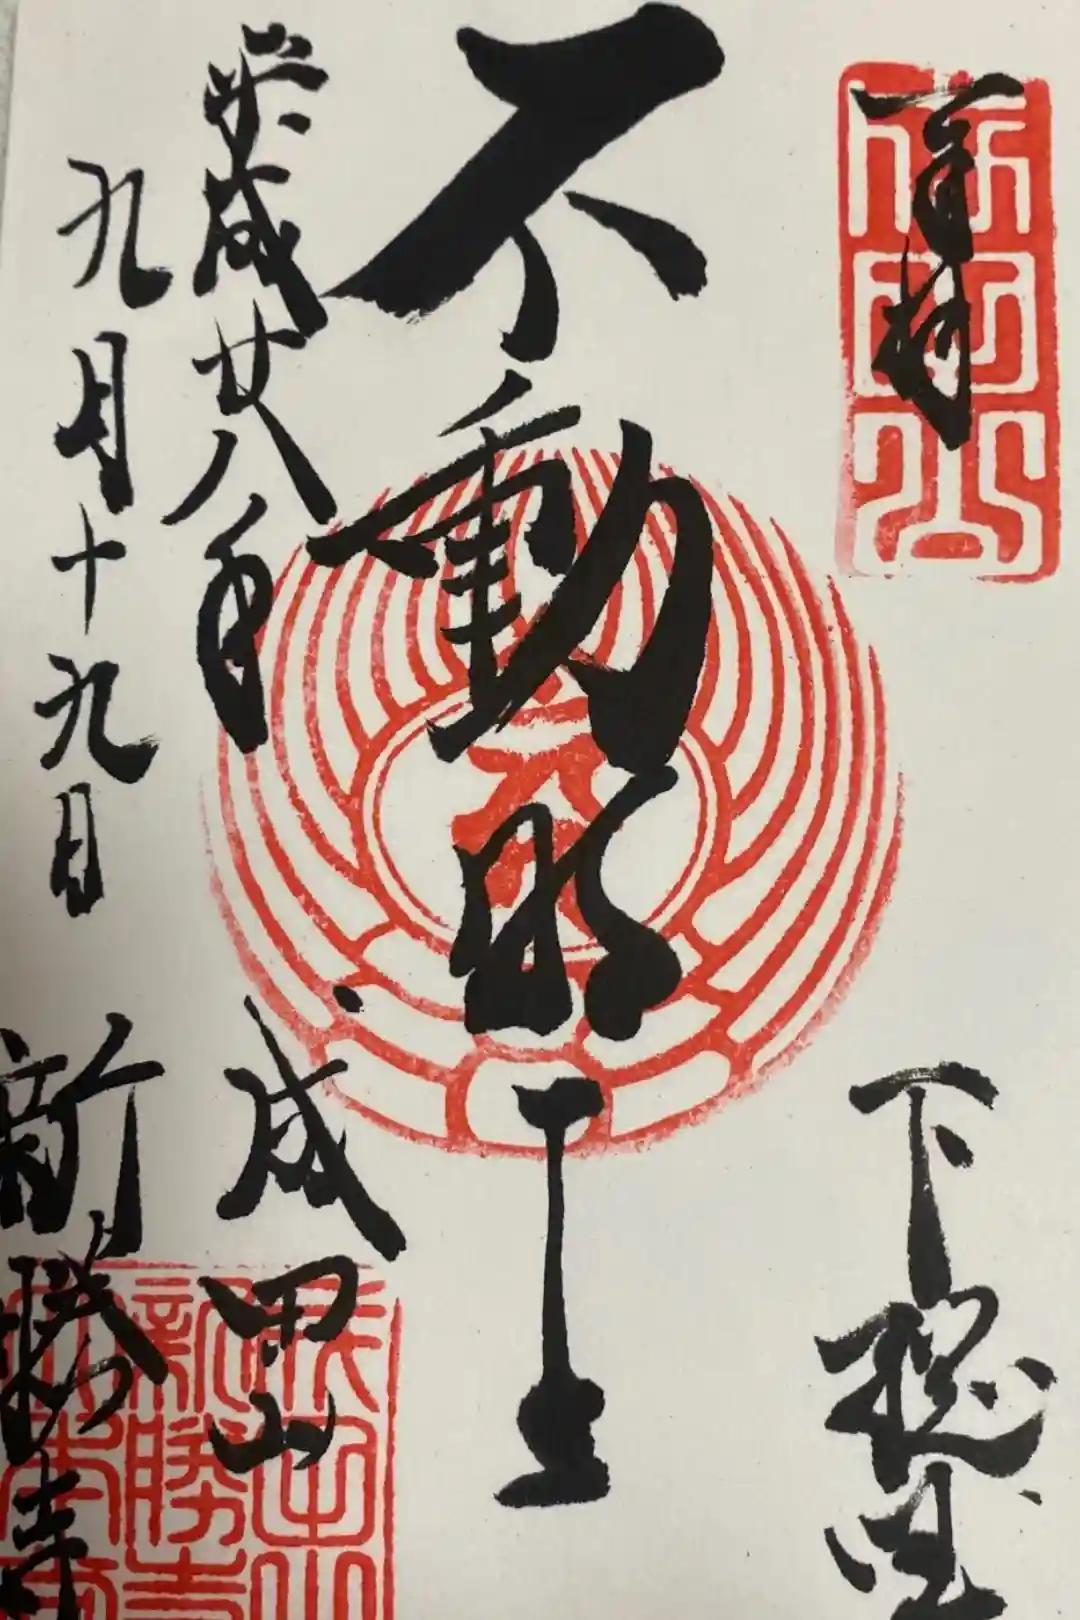 奉拝
下総國
不動明王
平成廿八年
九月十九日
成田山
新勝寺